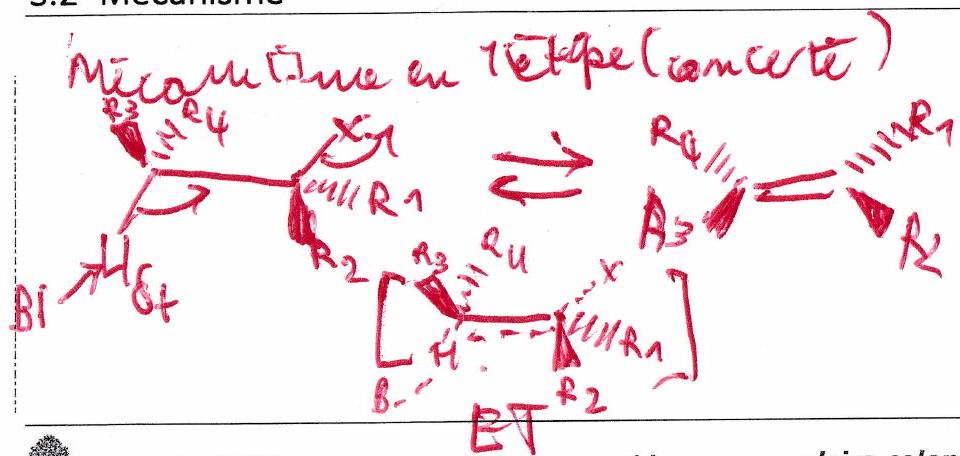 3.2 Mécanisme
Mécanisme en 1 étape (concerté)
R3 R4 X R4 R1
R1 R3
H R2 R2
B| δ+
R3 R4 X
H R1
B R2
ET